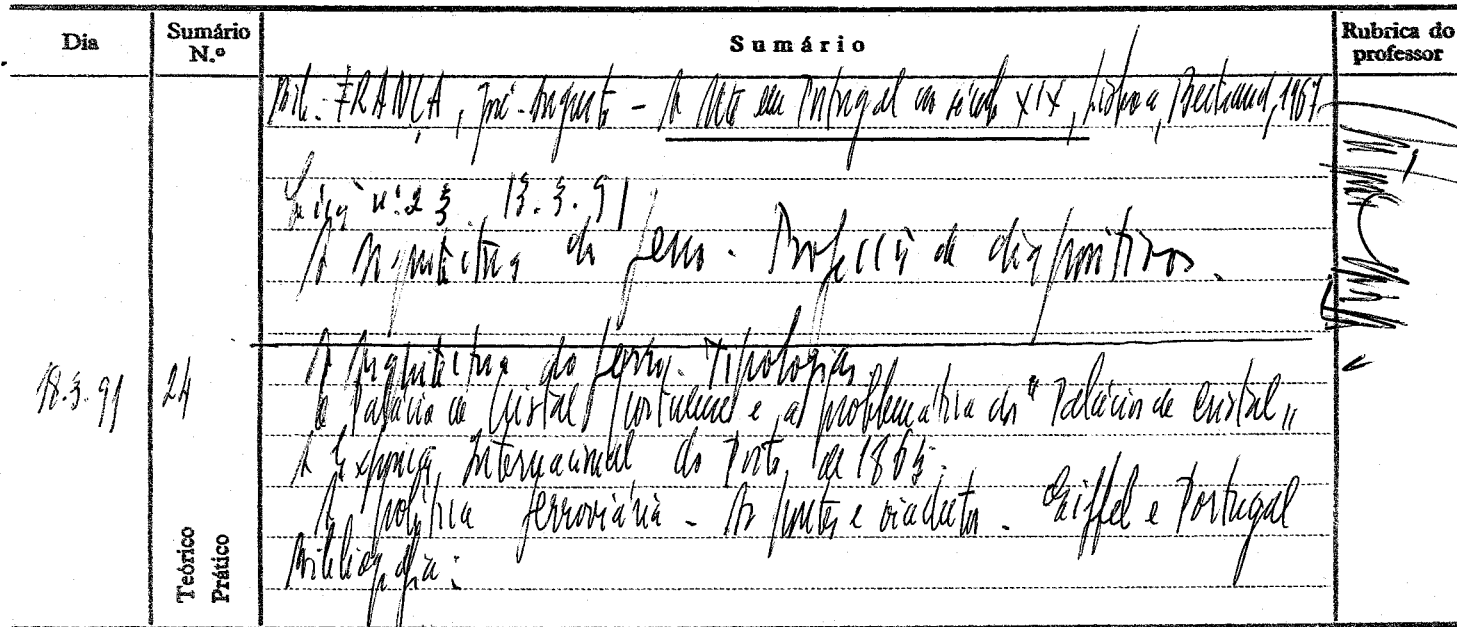 Dia
Sumário N.º
Sumário
Rubrica do professor
Bibl. FRANÇA, José-Augusto - A Arte em Portugal no século XIX, Lisboa, Bertrand, 1967
Lição nº 23 13.3.91
A Arquitectura do ferro. Projecção de diapositivos.
18.3.91
24
A Arquitectura do ferro. Tipologias.
O Palácio de Cristal portuense e a problemática do "Palácio de Cristal"
A Exposição Internacional do Porto, de 1865.
A política ferroviária - As pontes e viadutos. Eiffel e Portugal
Bibliografia:
Teórico
Prático